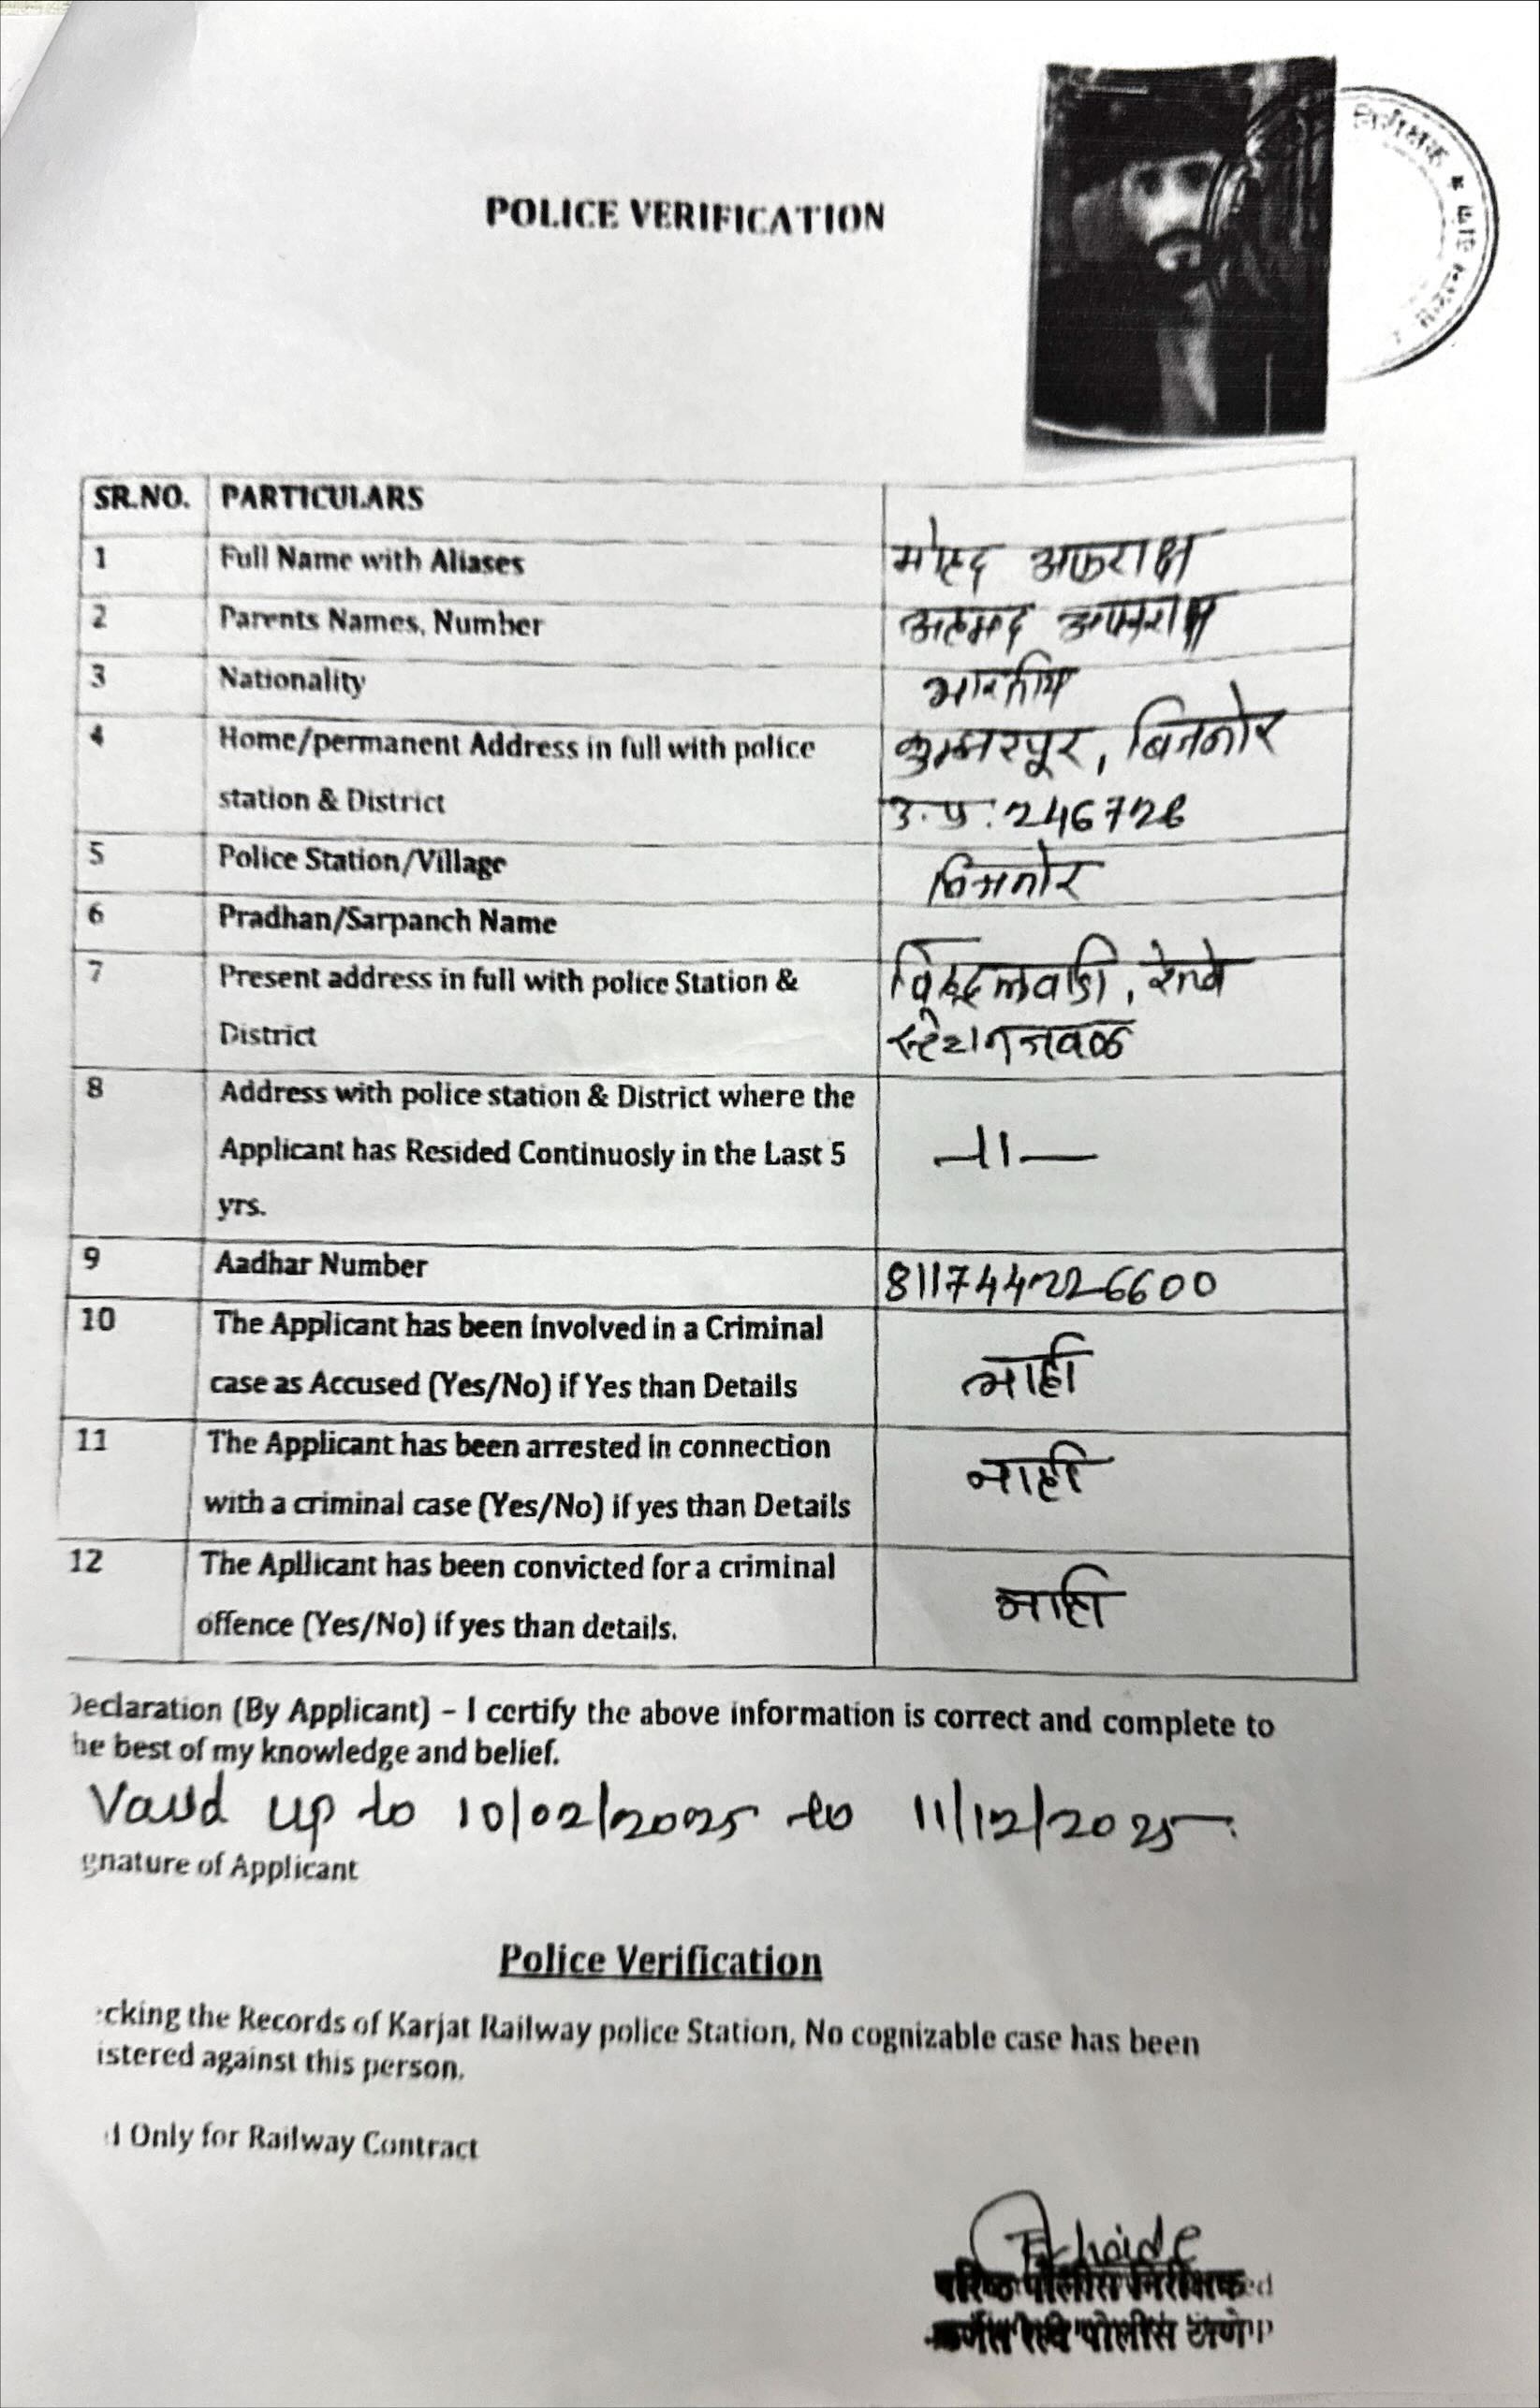 निरीक्षक *
POLICE VERIFICATION
SR.NO. PARTICULARS
1 Full Name with Aliases मोहद अफराक्ष
2 Parents Names, Number अहमद
3 Nationality भारतीय
4 Home/permanent Address in full with police
station & District
बिजनोर
उ.प्र. 246728
5 Police Station/Village बिजनोर
6 Pradhan/Sarpanch Name
7 Present address in full with police Station &
District
विठ्ठलवाडी, रेल्वे
स्टेशन जवळ
8 Address with police station & District where the
Applicant has Resided Continuosly in the Last 5
yrs.
—11—
9 Aadhar Number 811744226600
10 The Applicant has been involved in a Criminal
case as Accused (Yes/No) if Yes than Details
नाही
11 The Applicant has been arrested in connection
with a criminal case (Yes/No) if yes than Details
नाही
12 The Apllicant has been convicted for a criminal
offence (Yes/No) if yes than details.
नाही
eclaration (By Applicant) – I certify the above information is correct and complete to
he best of my knowledge and belief.
Valid up to 10/02/2025 to 11/12/2025
gnature of Applicant
Police Verification
cking the Records of Karjat Railway police Station, No cognizable case has been
istered against this person.
d Only for Railway Contract
वरिष्ठ पोलीस निरीक्षक
कर्जत रेल्वे पोलीस ठाणे